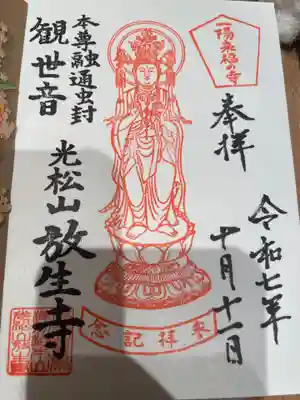 一陽来福の寺
奉拝
令和七年
十月十一日
来拝記念
本尊融通虫封
観世音
光松山放生寺